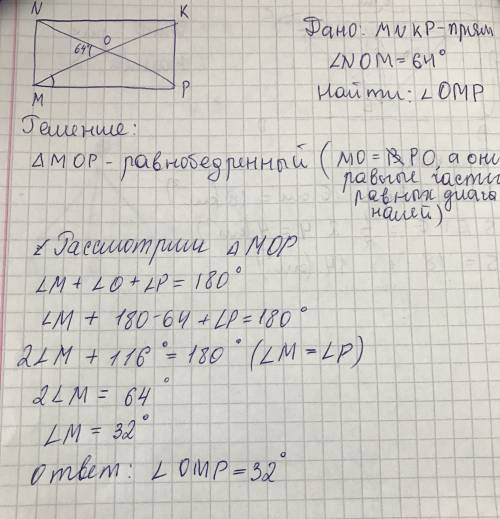 N K
Дано: MNKP-прям
64° O
∠NOM=64°
M P
Найти: ∠OMP
Решение:
ΔMOP - равнобедренный ( MO = PO, а они
равные части
равных диаго
налей)
Рассмотрим ΔMOP
∠M + ∠O + ∠P = 180°
∠M + 180-64 + ∠P = 180°
2∠M + 116° = 180° (∠M = ∠P)
2∠M = 64°
∠M = 32°
Ответ: ∠OMP = 32°